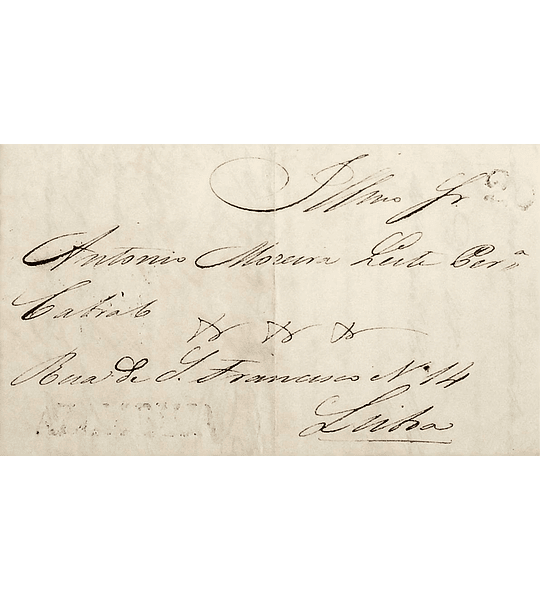 Illmo Sr.
Antonio Moreira Leite Per.ª
Cabral
Rua de S. Francisco Nº 14
Lisboa